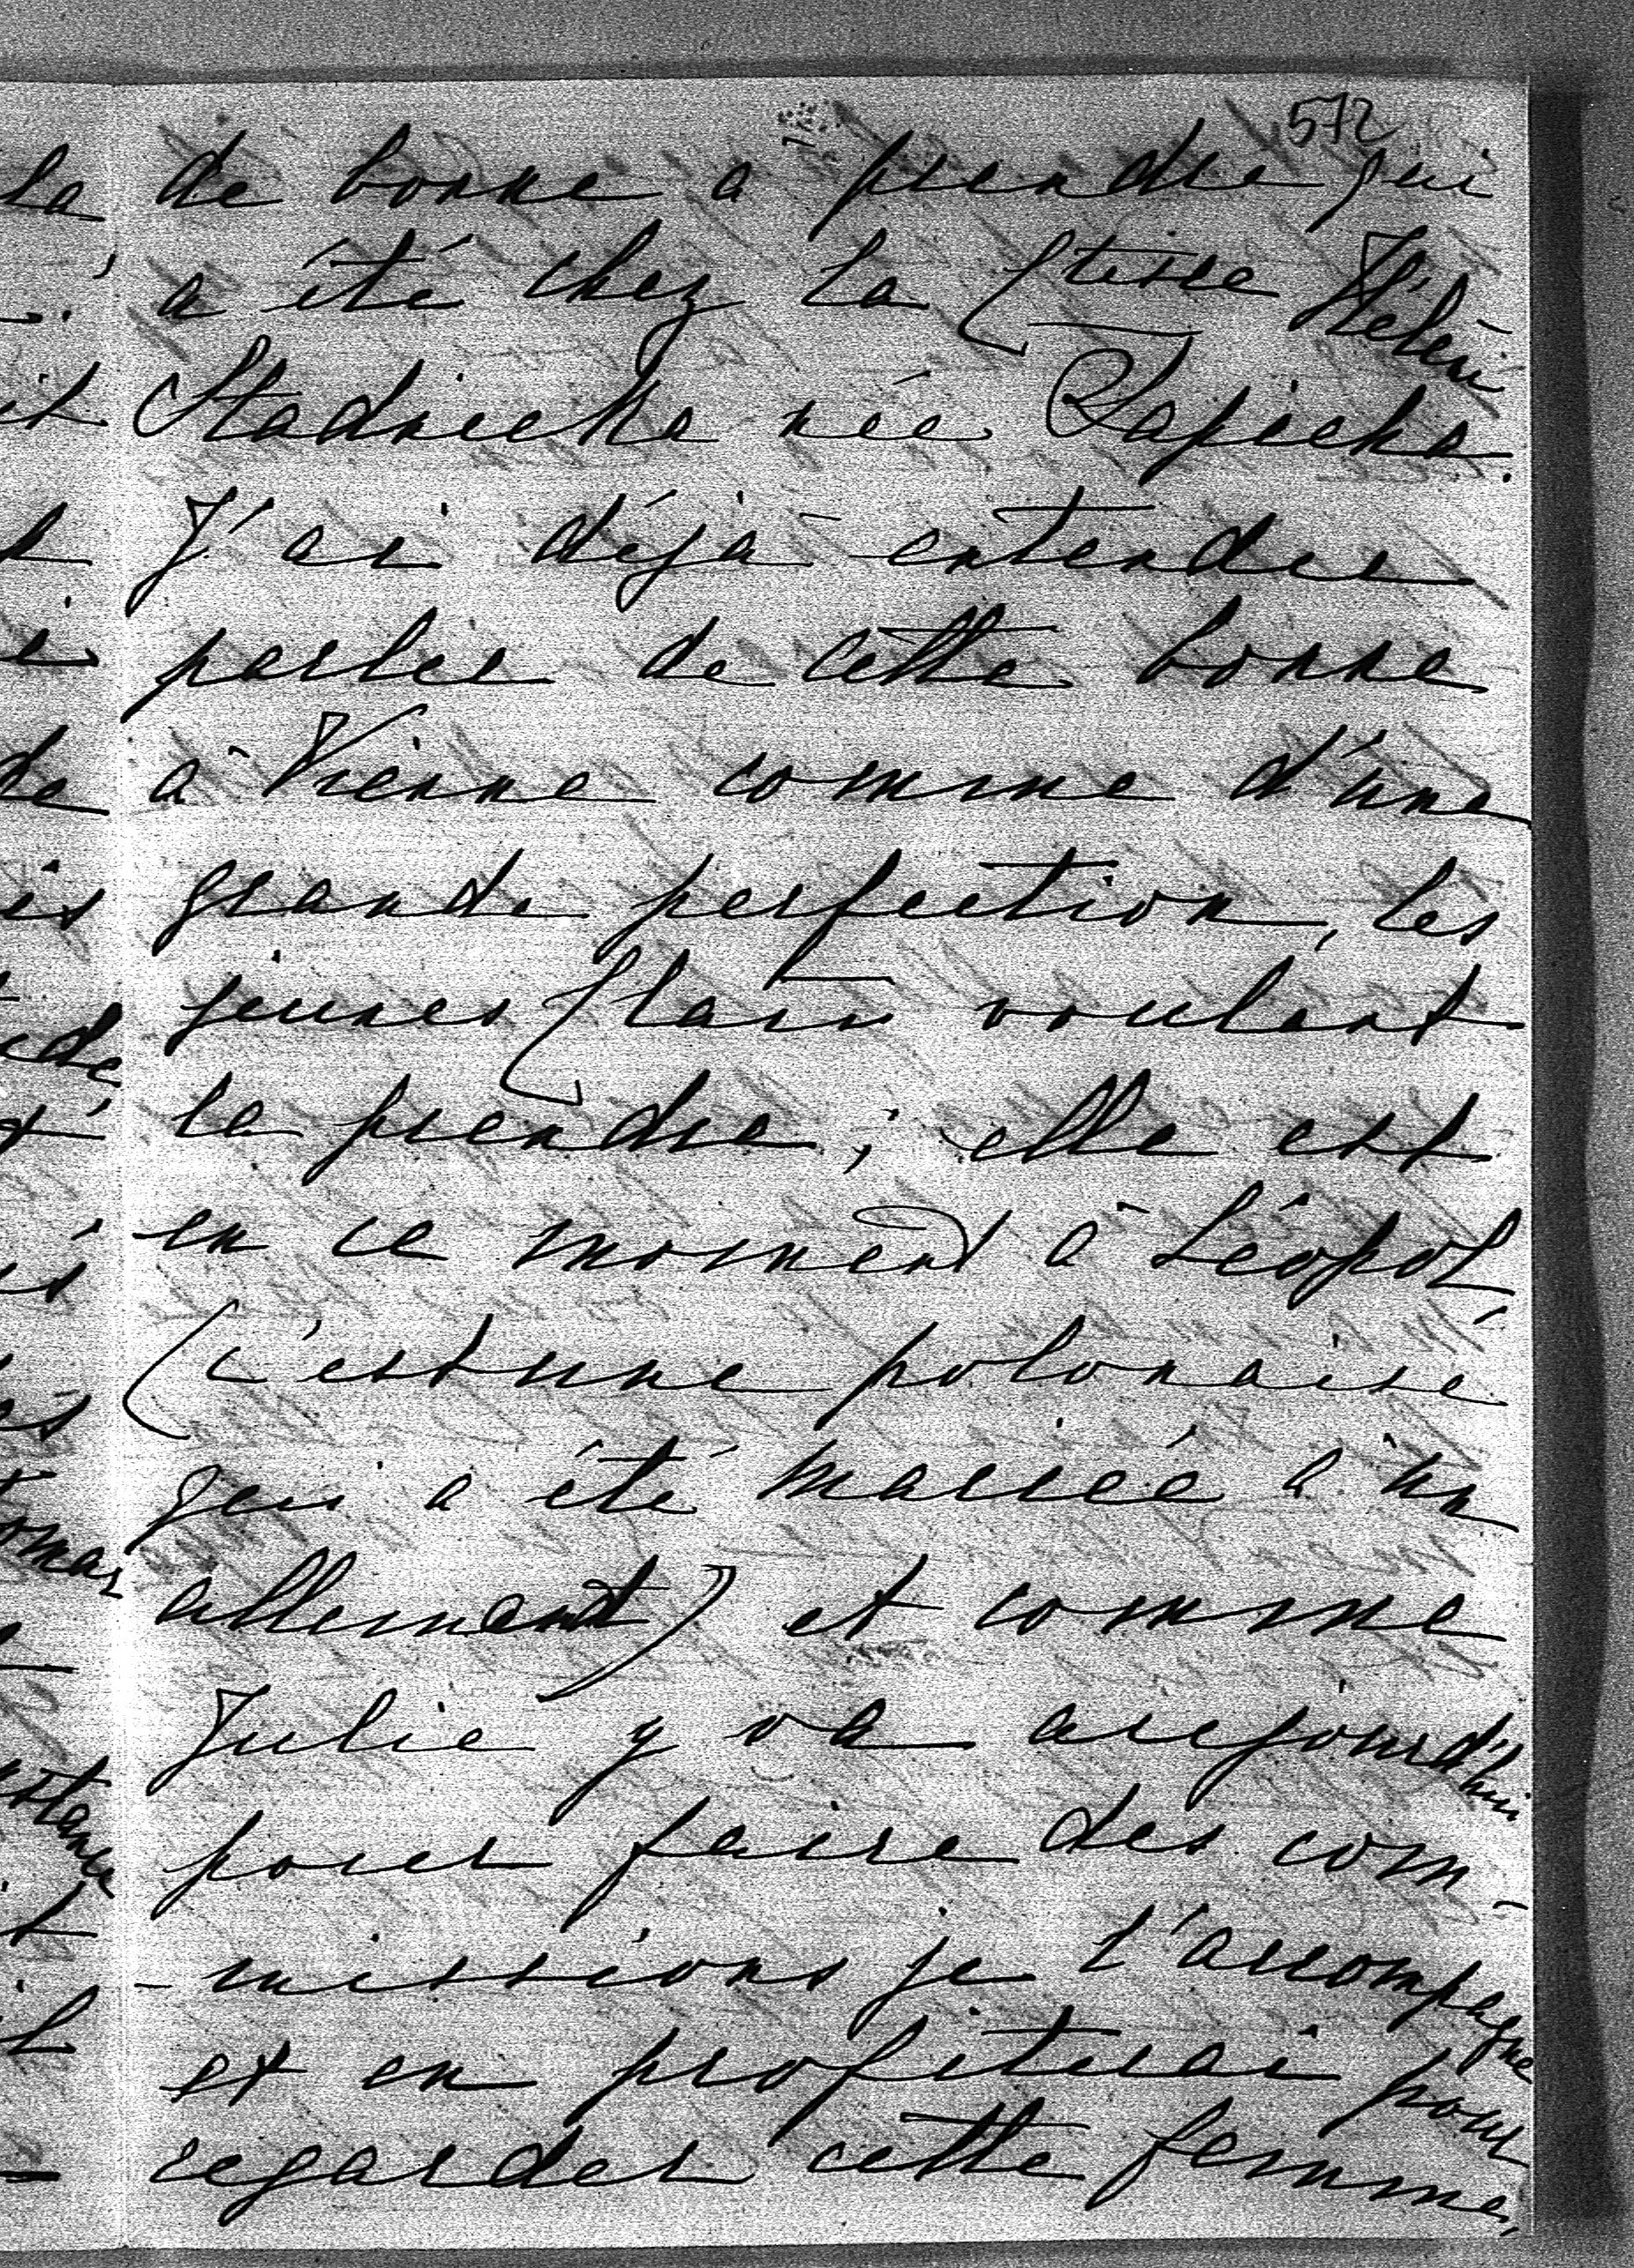 572
de bonne a prendre qui
a été chez la Ctesse Hélène
Stadnicka née Sapieha.
J'ai déjà entendu
parler de cette bonne
à Vienne comme d'une
grande perfection, les
jeunes voulant
la prendre; elle est
en ce moment à Léopol
(c'est une polonaise
qui a été mariée à un
allemand) et comme
Julie y va aujourd'hui
pour faire des com-
-missions je l'accompagne
et en profiterai pour
regarder cette femme,